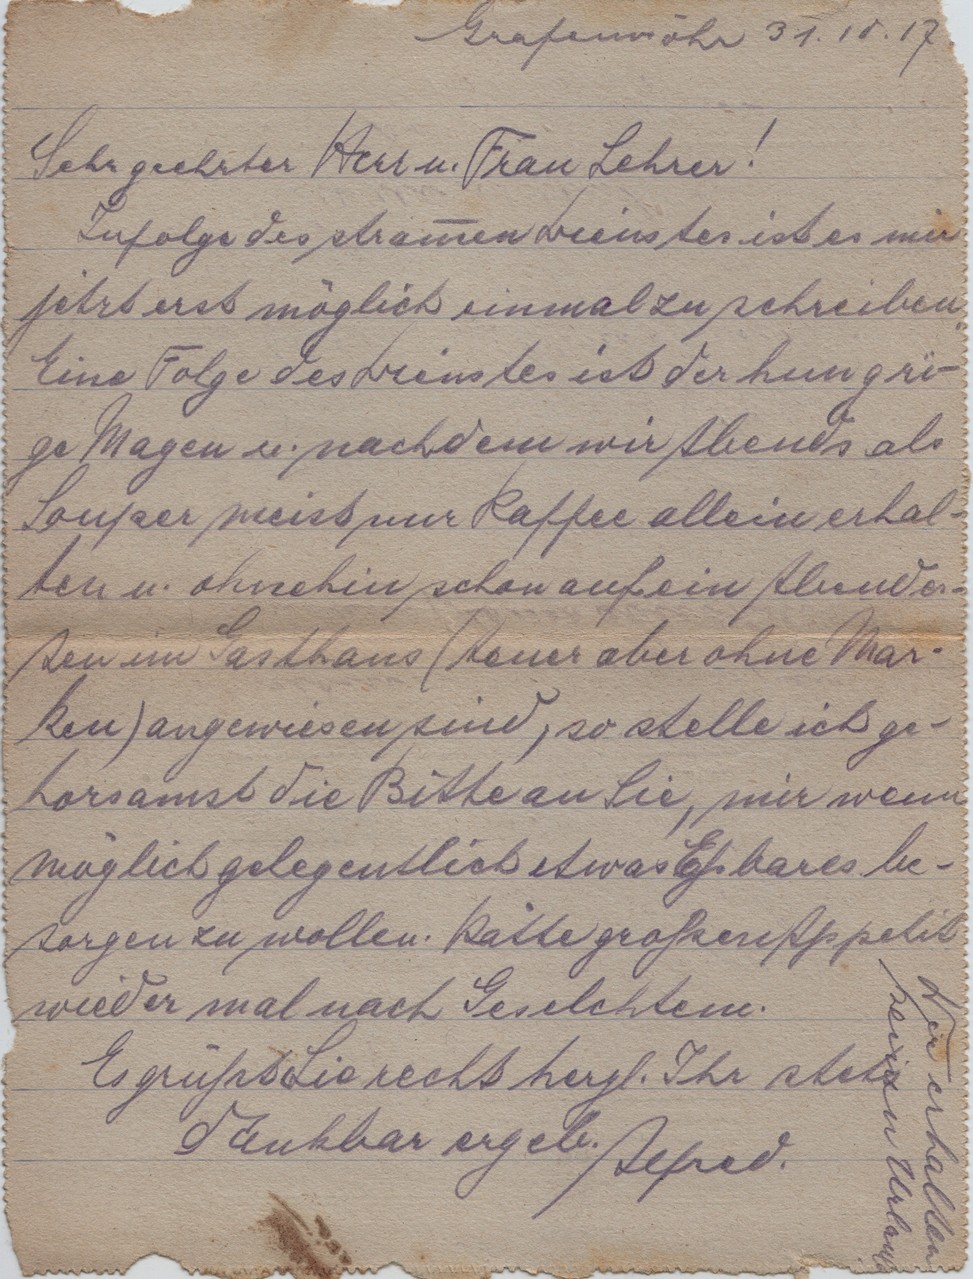 Grafenwöhr 31.10.17
Sehr geehrter Herr u. Frau Lehrer!
Infolge des stram̅en Dienstes ist es mir
jetzt erst möglich einmal zu schreiben.
Eine Folge des Dienstes ist der hungri-
ge Magen u. nachdem wir Abends als
Souper meist nur Kaffee allein erhal-
ten u. ohnehin schon auf ein Abendes-
sen im Gasthaus (teuer aber ohne Mar-
ken) angewiesen sind, so stelle ich ge-
horsamst die Bitte an Sie, mir wenn
möglich gelegentlich etwas Eßbares be-
sorgen zu wollen. Hätte großen Appetit
wieder mal nach Geselchtem.
Es grüßt Sie recht herzl. Ihr stets
dankbar ergeb. Alfred.
Wir erhalten
keinen Urlaub